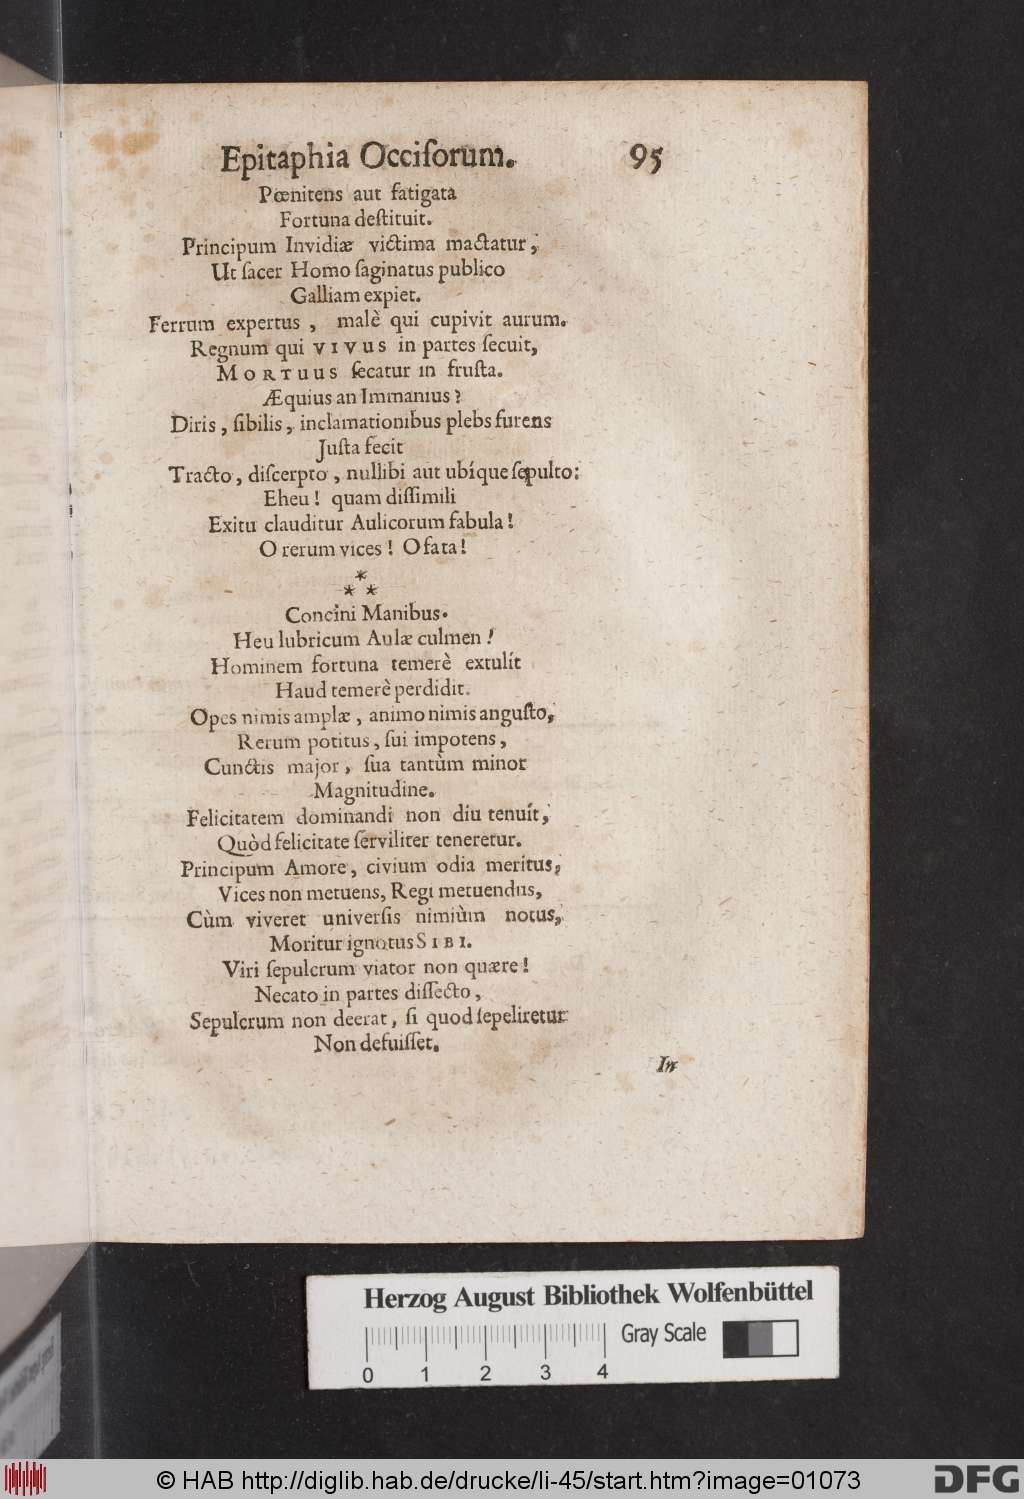 Epitaphia Occiſorum. 95
Pœnitens aut fatigata
Fortuna deſtituit.
Principum Invidiæ victima mactatur,
Ut ſacer Homo ſaginatus publico
Galliam expiet.
Ferrum expertus, malè qui cupivit aurum.
Regnum qui VIVUS in partes ſecuit,
MORTUUS ſecatur in fruſta.
Æquius an Immanius?
Diris, ſibilis, inclamationibus plebs furens
Juſta fecit
Tracto, diſcerpto, nullibi aut ubíque ſepulto:
Eheu! quam diſſimili
Exitu clauditur Aulicorum fabula!
O rerum vices! O fata!
*
* *
Concini Manibus.
Heu lubricum Aulæ culmen!
Hominem fortuna temerè extulít
Haud temerè perdidit.
Opes nimis amplæ, animo nimis anguſto,
Rerum potitus, ſui impotens,
Cunctis major, ſua tantùm minor
Magnitudine.
Felicitatem dominandi non diu tenuít,
Quòd felicitate ſerviliter teneretur.
Principum Amore, civium odia meritus,
Vices non metuens, Regi metuendus,
Cùm viveret univerſis nimiùm notus,
Moritur ignotus SIBI.
Viri ſepulcrum viator non quære!
Necato in partes diſſecto,
Sepulcrum non deerat, ſi quod ſepeliretur
Non defuiſſet.
In
Herzog August Bibliothek Wolfenbüttel
Gray Scale
0 1 2 3 4
© HAB http://diglib.hab.de/drucke/li-45/start.htm?image=01073
DFG